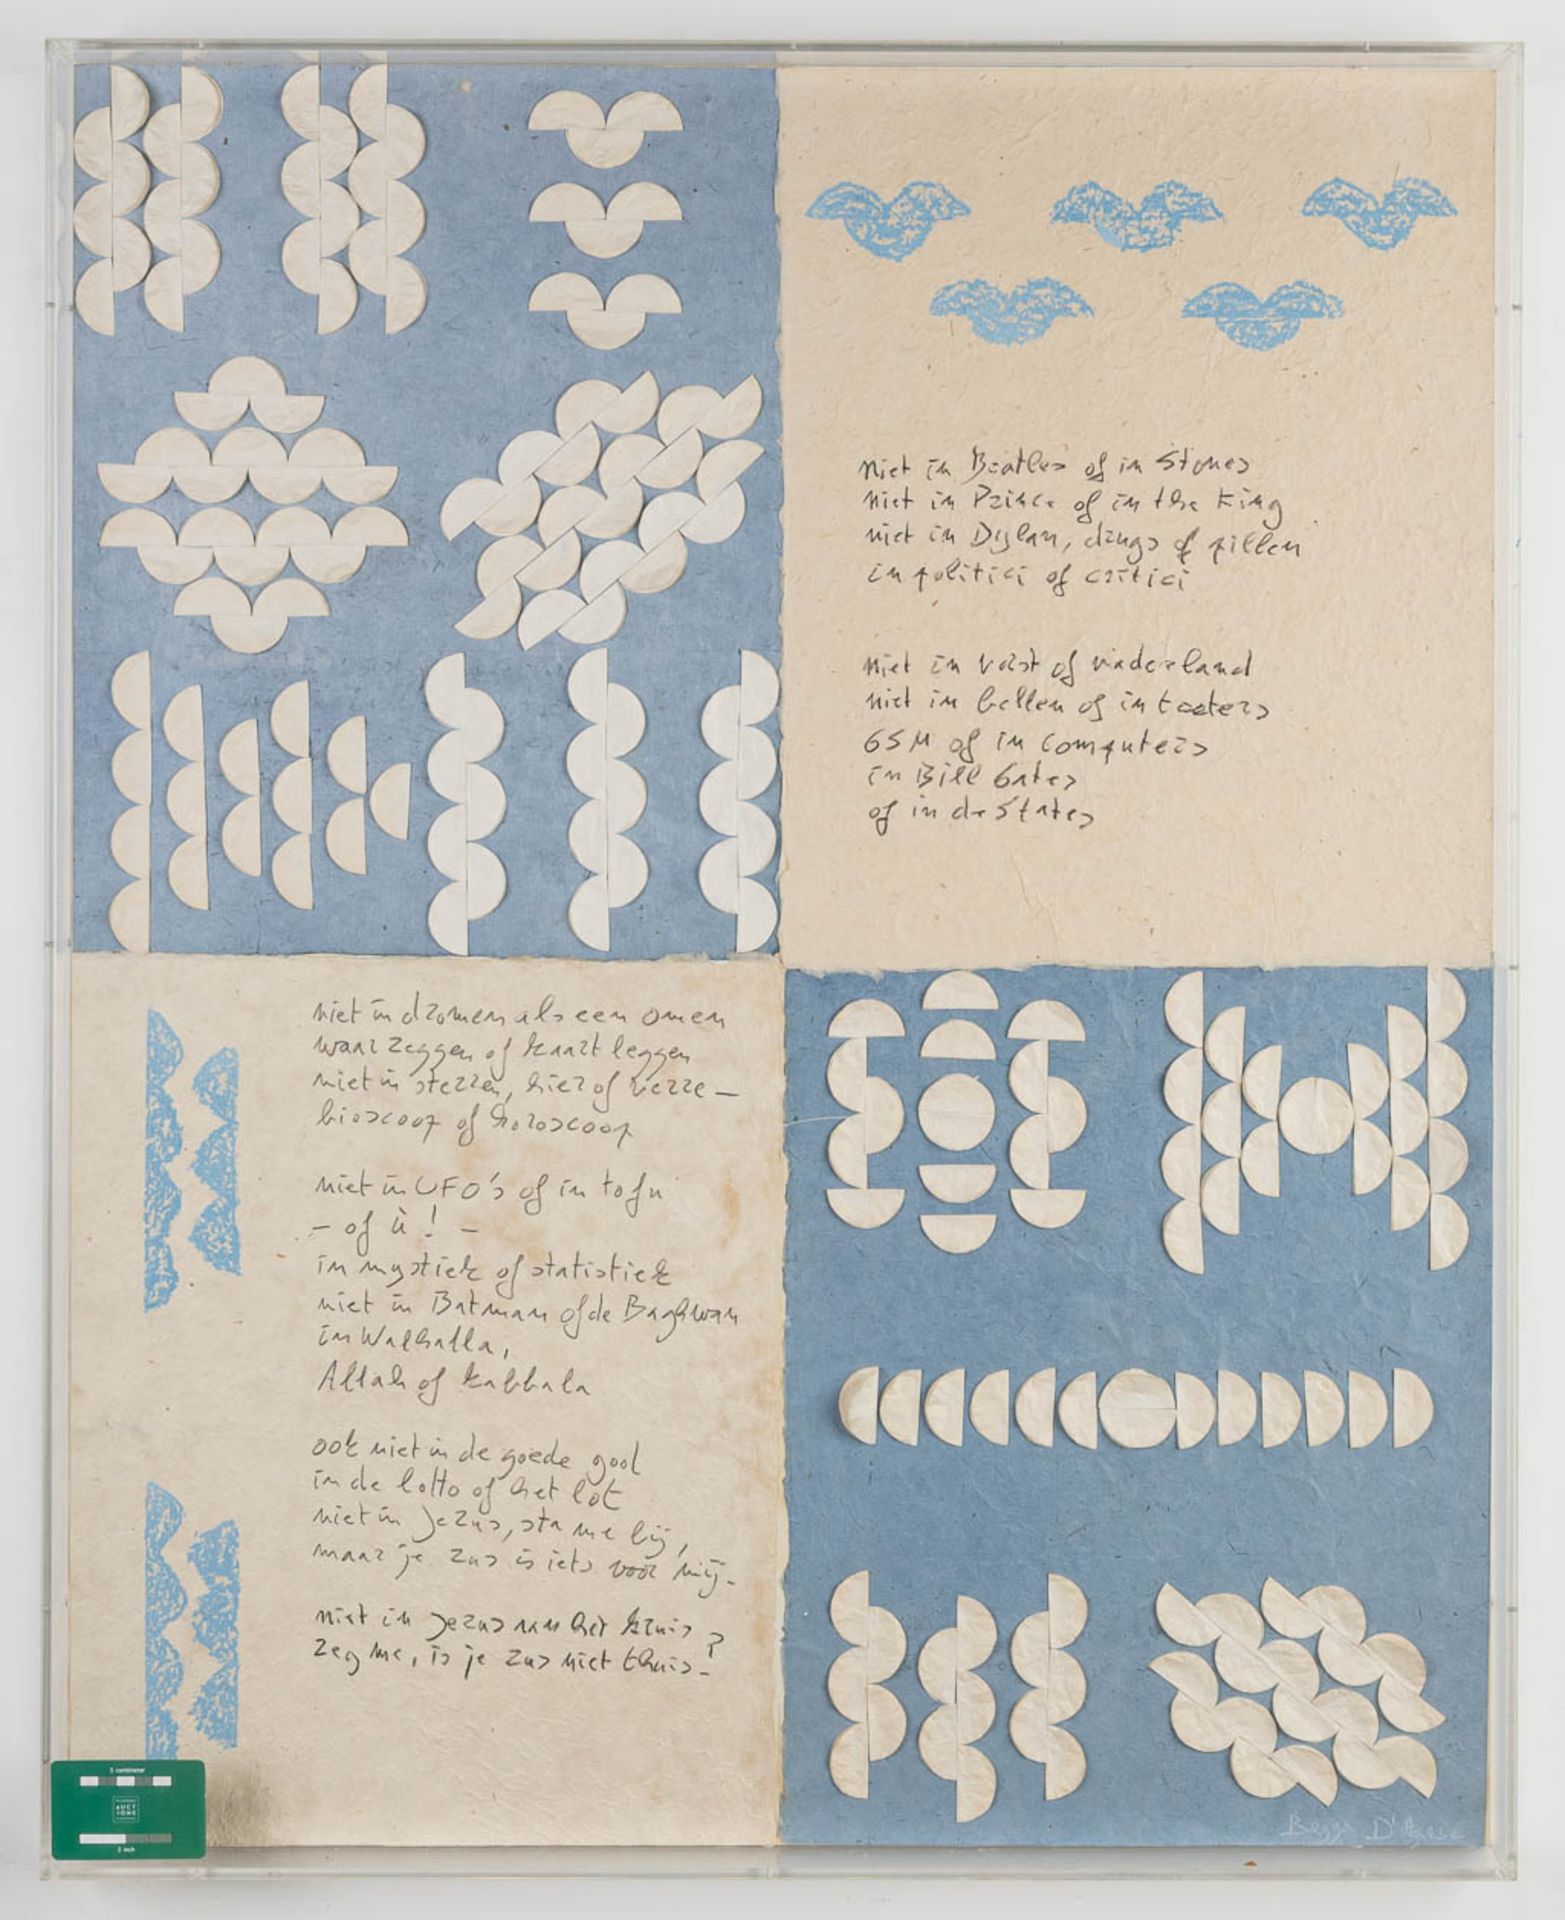 niet in Beatles of in Stones
niet in Prince of in the King
niet in Dylan, drugs of pillen
in politici of critici
niet in vorst of vaderland
niet in bellen of in toeters
GSM of in computers
in Bill Gates
of in de States
niet in dromen als een omen
waarzeggen of kaartleggen
niet in sterren, hier of verre –
bioscoop of horoscoop
niet in UFO's of in tofu
– of ù! –
in mystiek of statistiek
niet in Batman of de Baghwan
in Walhalla,
Allah of kabbala
ook niet in de goede god
in de lotto of het lot
niet in Jezus, sta me bij,
maar je zus is iets voor mij.
niet in Jezus aan het kruis
zeg me, is je zus niet thuis?
5 centimeter
AUCT
IONS
2 inch